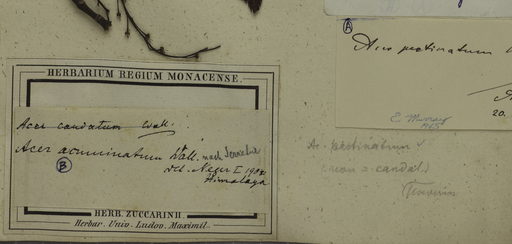 HERBARIUM REGIUM MONACENSE.
Acer caudatum Wall.
Acer acuminatum Wall. nach
B
det. Neger I 1901
Himalaya
HERB. ZUCCARINII.
Herbar. Univ. Ludov. Maximil.
A
Acer pectinatum
20.
E. Murray
1965
Ac. pectinatum
(non = caudat.)